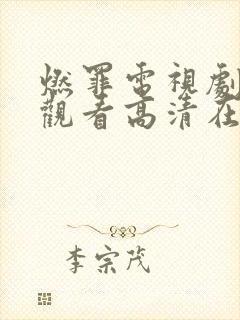 燃罪電視劇
觀看高清在
李宗茂